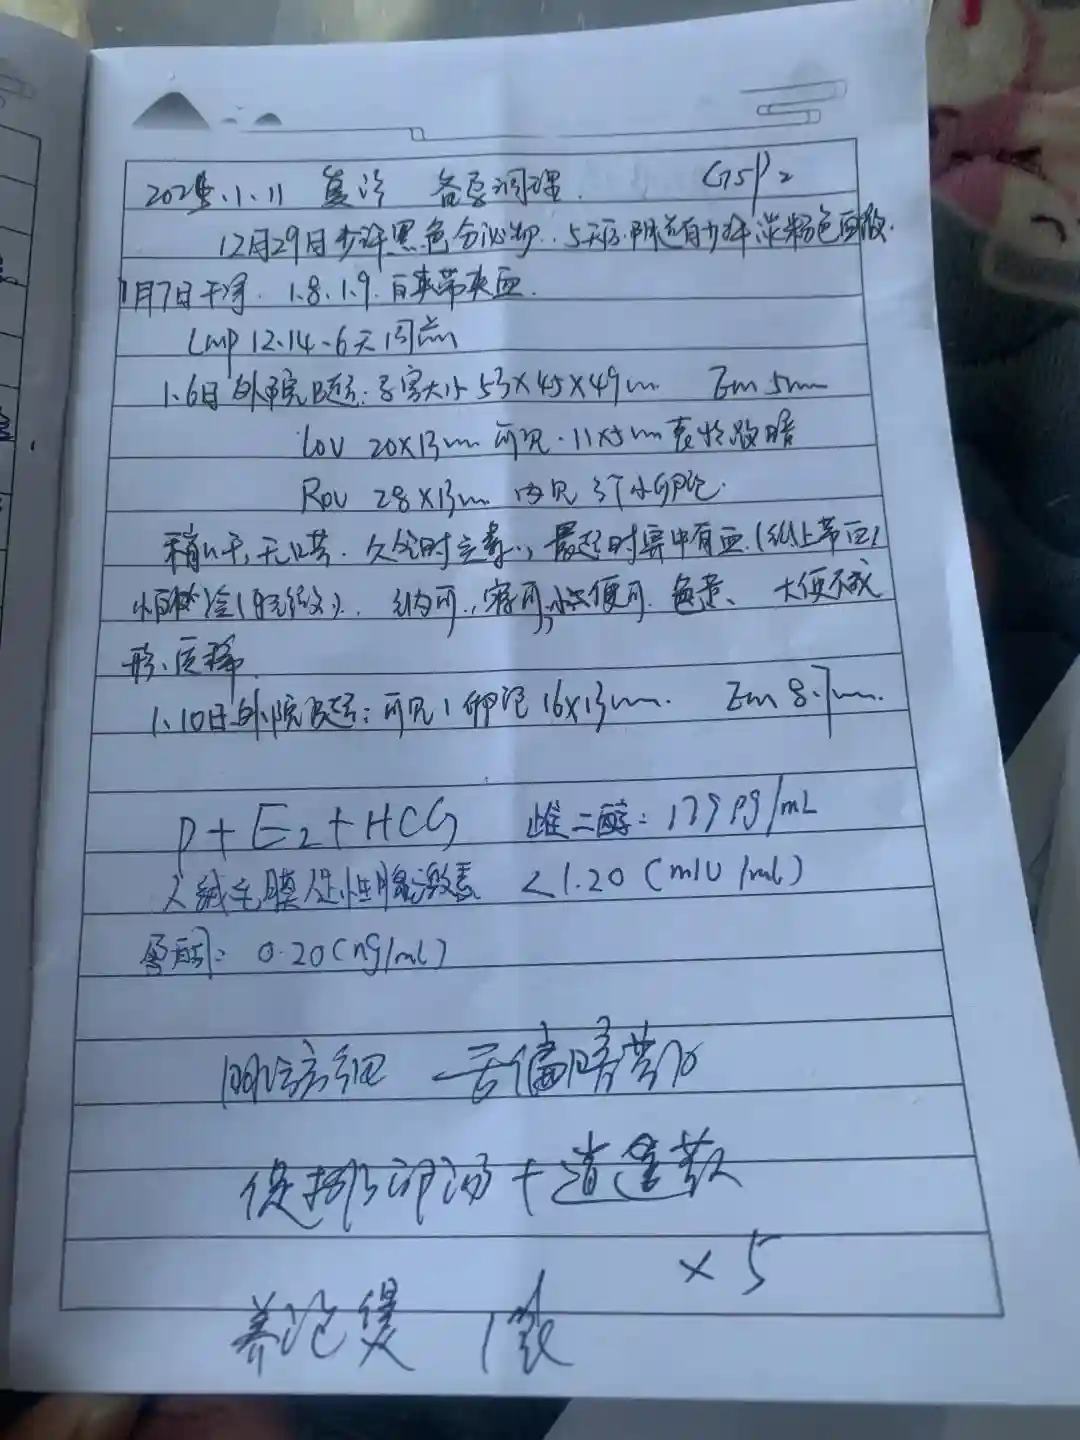 .1.11 复诊 备孕调理. G5P2
12月29日少许黑色分泌物.5天后.阴道有少许淡粉色
1月7日干净. 1.8.1.9.白带夹血.
Lmp 12.14.6天
1.6日外院B超示:子宫大小53×45×49mm Em 5mm
LOV 20×13mm 可见.11×5mm
ROV 28×13mm 内见3个小卵泡.
无口苦. 晨起时鼻中有血.(纸上带血)
纳可., 寐可, 小便可.色黄、大便不成
形、质稀.
1.10日外院B超示:可见1卵泡16×13mm. Em 8.7mm.
P+E2+HCG 雌二醇:179pg/mL
人绒毛膜促性腺激素 <1.20(mIU/mL)
孕酮: 0.20(ng/mL)
脉 细 舌偏暗苔
促排卵汤+逍遥散
×5
养泡煲 1